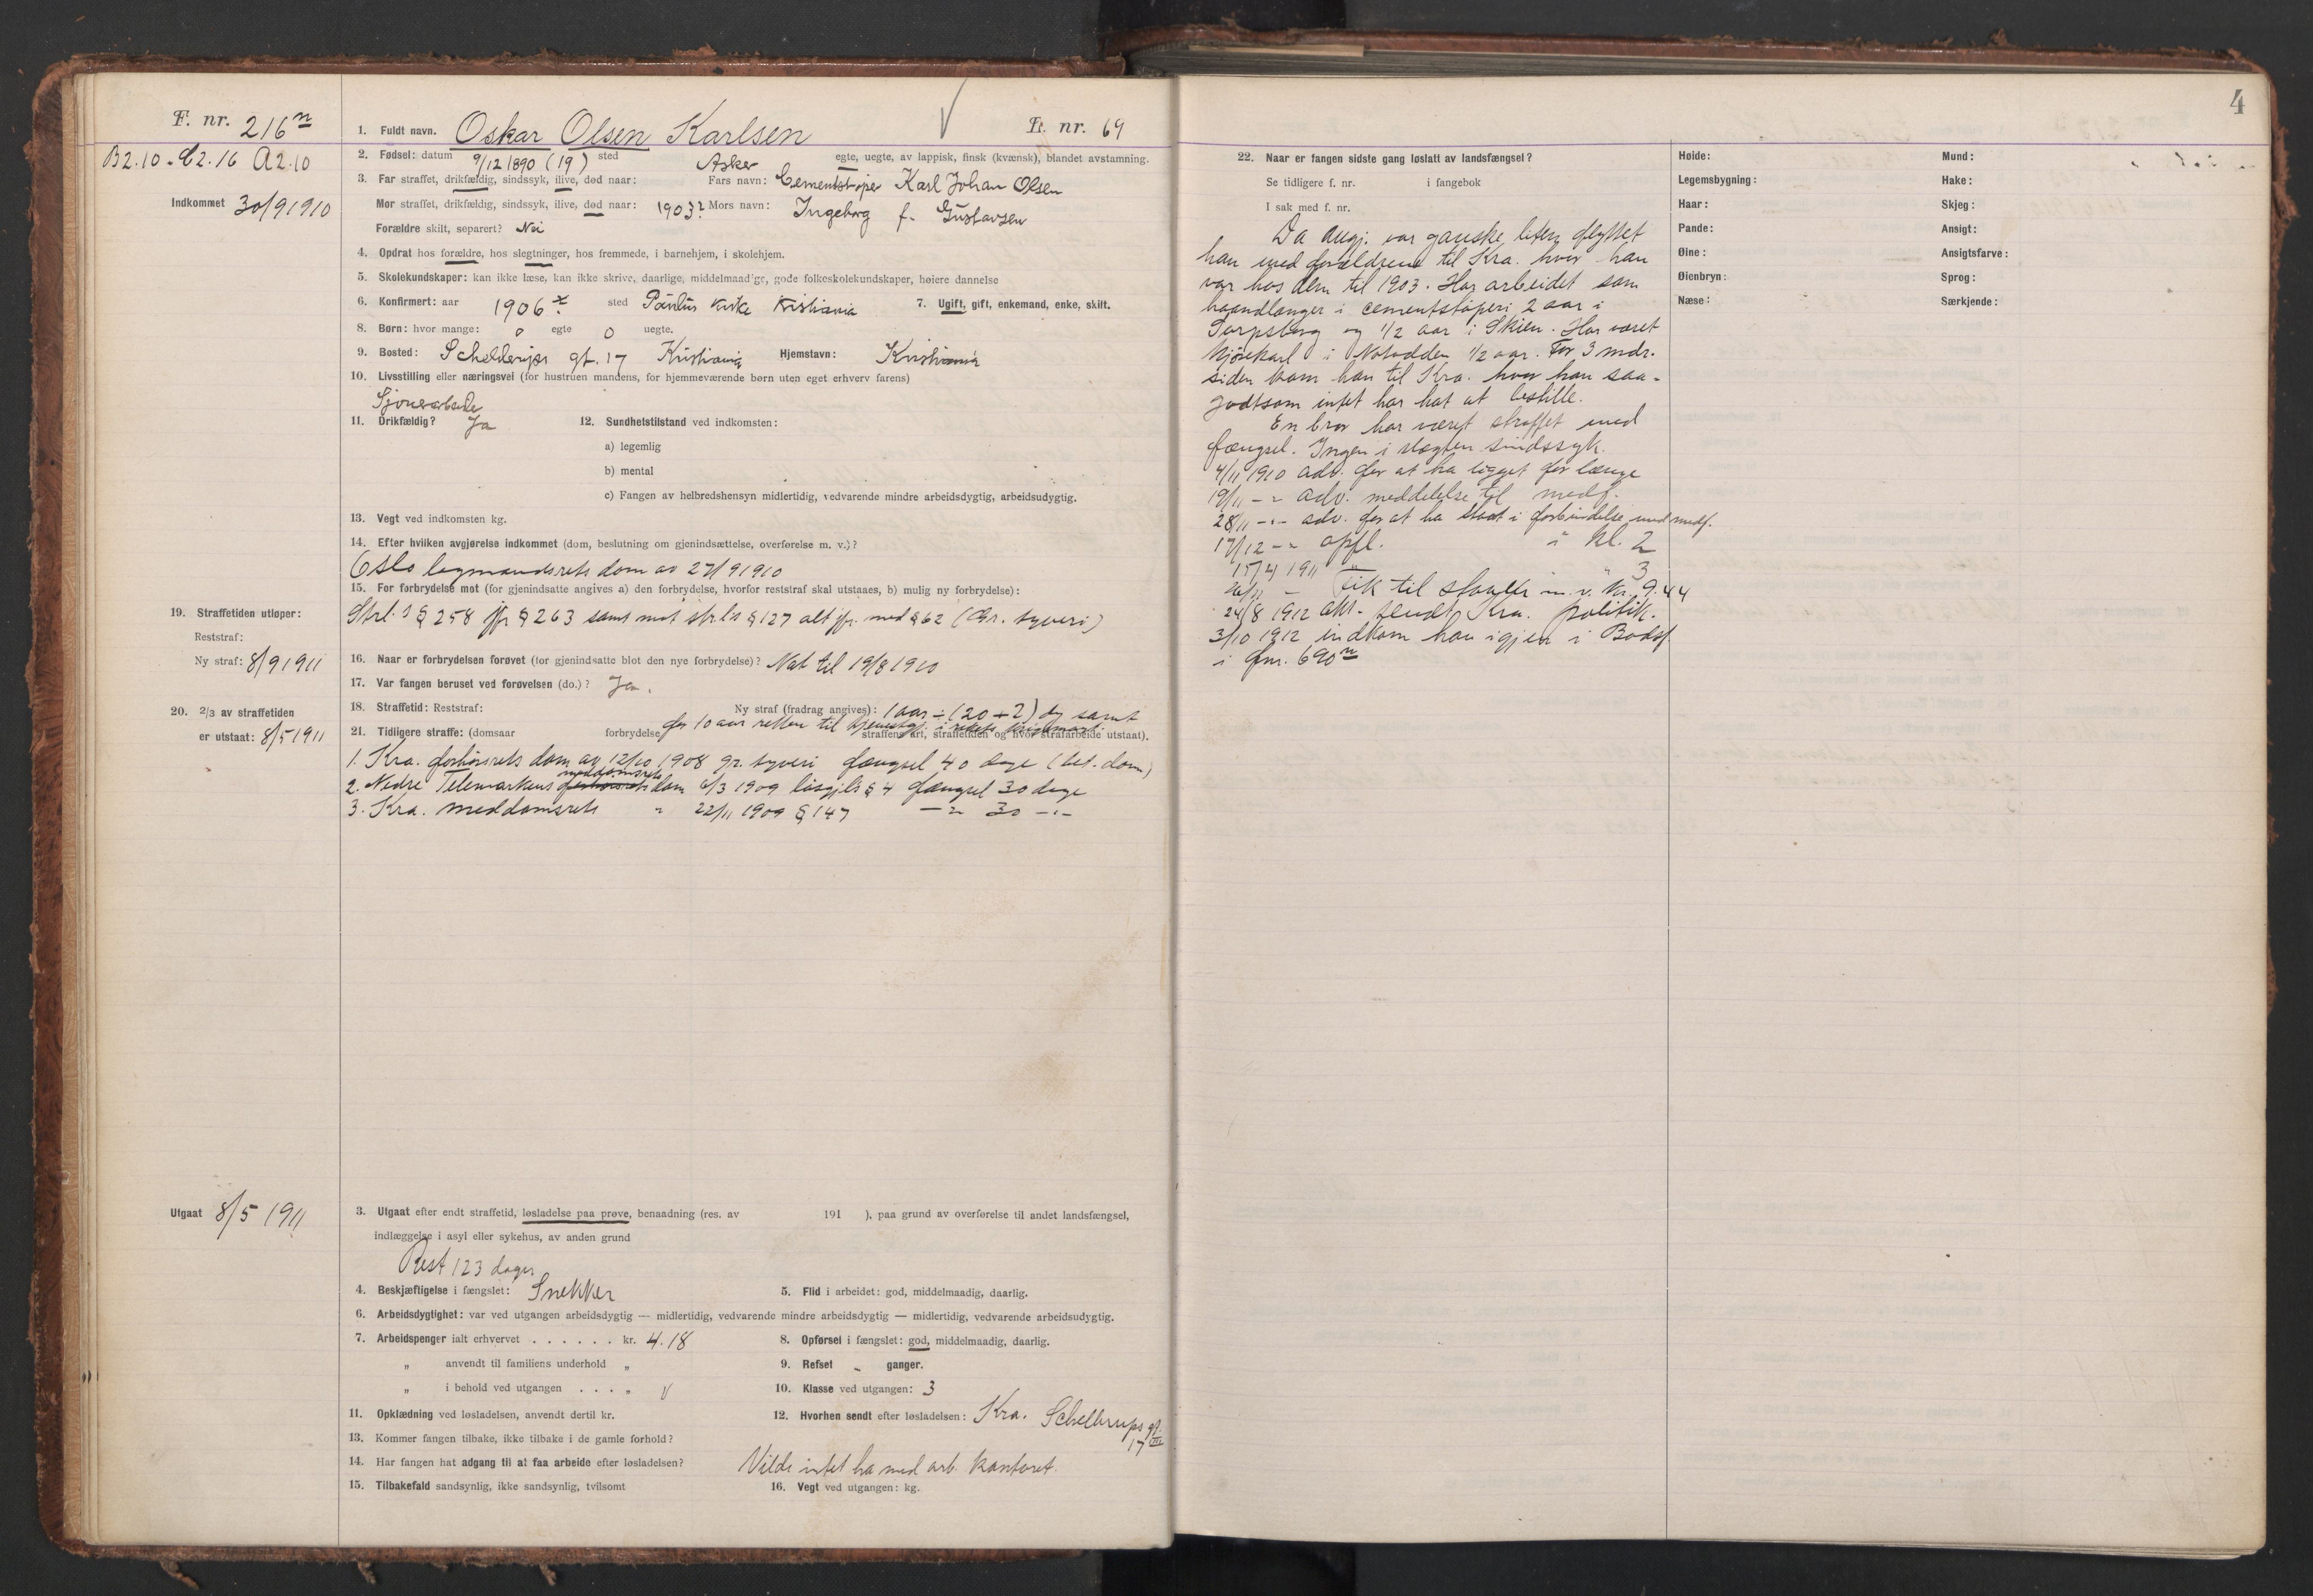 F. nr. 216 n
B2.10 - C2.16 A2.10
Indkommet 30/9 1910
1. Fuldt navn. Oskar Olsen Karlsen
E. nr. 69
2. Fødsel: datum 9/12 1890 (19) sted Asker egte, uegte, av lappisk, finsk (kvænsk), blandet avstamning.
3. Far straffet, drikfældig, sindssyk, ilive, død naar: Fars navn: Cementstøper Karl Johan Olsen
Mor straffet, drikfældig, sindssyk, ilive, død naar: 1903? Mors navn: Ingeborg f. Gustavsen
Forældre skilt, separert? Nei
4. Opdrat hos forældre, hos slegtninger, hos fremmede, i barnehjem, i skolehjem.
5. Skolekundskaper: kan ikke læse, kan ikke skrive, daarlige, middelmaad'ge, gode folkeskolekundskaper, høiere dannelse
6. Konfirmert: aar 1906 sted Paulus kirke Kristiania 7. Ugift, gift, enkemand, enke, skilt.
8. Børn: hvor mange: 0 egte 0 uegte.
9. Bosted: gt. 17 Kristiania Hjemstavn: Kristiania
10. Livsstilling eller næringsvei (for hustruen mandens, for hjemmeværende børn uten eget erhverv farens)
11. Drikfældig? Ja 12. Sundhetstilstand ved indkomsten:
a) legemlig
b) mental
c) Fangen av helbredshensyn midlertidig, vedvarende mindre arbeidsdygtig, arbeidsudygtig.
13. Vegt ved indkomsten kg.
14. Efter hvilken avgjørelse indkommet (dom, beslutning om gjenindsættelse, overførelse m. v.)?
Oslo lagmandsrets dom av 27/9 1910
15. For forbrydelse mot (for gjenindsatte angives a) den forbrydelse, hvorfor reststraf skal utstaaes, b) mulig ny forbrydelse):
Strl.s § 258 jfr § 263 samt mot strl.s § 127 alt jfr. med § 62 (Gr. tyveri)
19. Straffetiden utløper:
Reststraf:
Ny straf: 8/9 1911
16. Naar er forbrydelsen forøvet (for gjenindsatte blot den nye forbrydelse)? Nat til 19/8 1910
17. Var fangen beruset ved forøvelsen (do.)? Ja.
20. 2/3 av straffetiden
er utstaat: 8/5 1911
18. Straffetid: Reststraf: Ny straf (fradrag angives): 1 aar ÷ (20 + 2) dg samt
for 10 aar retten til tjenestgj. i rikets krigsmagt.
21. Tidligere straffe: (domsaar forbrydelse straffens art, straffetiden og hvor strafarbeide utstaat).
1. Kra. forhørsrets dom av 12/10 1908 gr. tyveri fængsel 40 dage (bet. dom)
2. Nedre Telemarkens forhørsrets meddomsrets dom 6/3 1909 løsgjls § 4 fængsel 30 dage
3. Kra. meddomsrets " 22/11 1909 § 147 —"— 30 —"—
Utgaat 8/5 1911
3. Utgaat efter endt straffetid, løsladelse paa prøve, benaadning (res. av 191 ), paa grund av overførelse til andet landsfængsel,
indlæggelse i asyl eller sykehus, av anden grund
Rest 123 dager
4. Beskjæftigelse i fængslet: Snekker 5. Flid i arbeidet: god, middelmaadig, daarlig.
6. Arbeidsdygtighet: var ved utgangen arbeidsdygtig — midlertidig, vedvarende mindre arbeidsdygtig — midlertidig, vedvarende arbeidsudygtig.
7. Arbeidspenger ialt erhvervet . . . . . . kr. 4.18 8. Opførsel i fængslet: god, middelmaadig, daarlig.
" anvendt til familiens underhold " 9. Refset " ganger.
" i behold ved utgangen . . . " 10. Klasse ved utgangen: 3
11. Opklædning ved løsladelsen, anvendt dertil kr. 12. Hvorhen sendt efter løsladelsen: Kra. Schellerups gt.
17 III
13. Kommer fangen tilbake, ikke tilbake i de gamle forhold?
14. Har fangen hat adgang til at faa arbeide efter løsladelsen? Vilde intet ha med arb. kontoret.
15. Tilbakefald sandsynlig, ikke sandsynlig, tvilsomt 16. Vegt ved utgangen: kg.
4
22. Naar er fangen sidste gang løslatt av landsfængsel?
Se tidligere f. nr. i fangebok
I sak med f. nr.
Da angj. var ganske liten flyttet
han med forældrene til Kra. hvor han
var hos dem til 1903. Har arbeidet som
haandlanger i cementstøperi 2 aar i
Sarpsborg og 1/2 aar i Skien. Har været
kjørekarl i Notodden 1/2 aar. For 3 mdr.
siden kom han til Kra. hvor han saa-
godtsom intet har hat at bestille.
En bror har været straffet med
fængsel. Ingen i slægten sindssyk.
4/11 1910 adv. for at ha ligget for længe
19/11 —"— adv. meddelelse til medf.
28/11 —"— adv. for at ha staat i forbindelse med medf.
17/12 —"— opfl. i kl. 2
17/4 1911 " " 3
Gik til m. v. kr. 9.44
24/8 1912 akt. sendt Kra. politik.
3/10 1912 indkom han igjen i Bodsf.
i fnr. 690 n
Høide:
Legemsbygning:
Haar:
Pande:
Øine:
Øienbryn:
Næse:
Mund:
Hake:
Skjeg:
Ansigt:
Ansigtsfarve:
Sprog:
Særkjende: